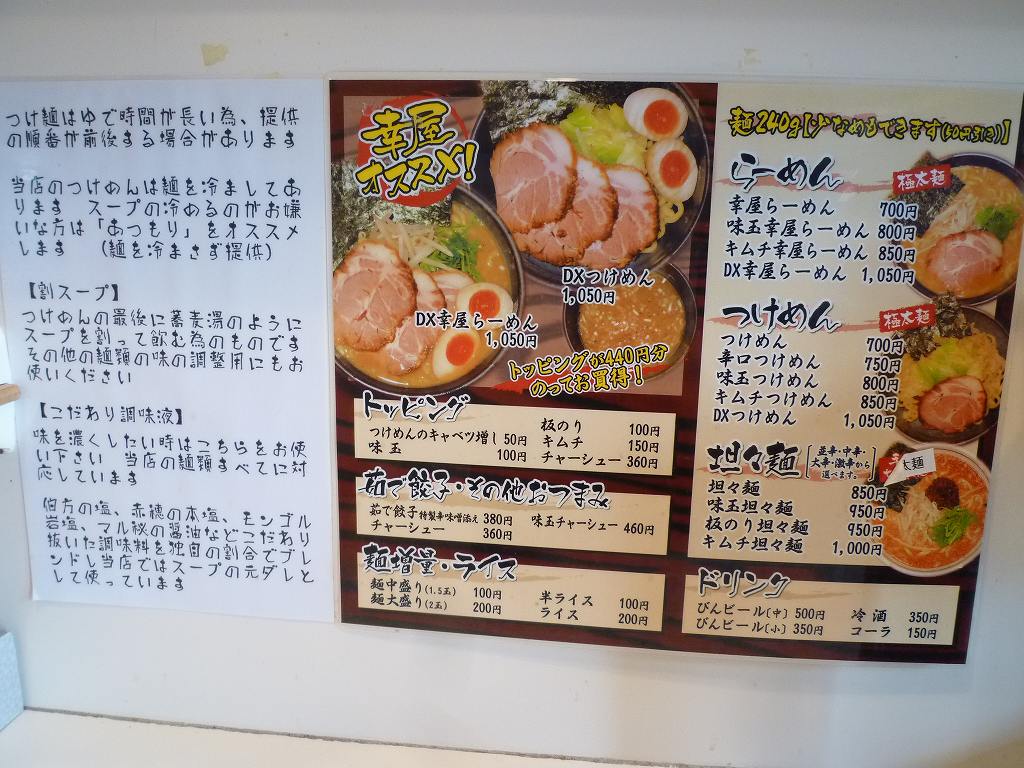 つけ麺はゆで時間が長い為、提供
の順番が前後する場合があります
当店のつけめんは麺を冷ましてあ
ります スープの冷めるのがお嫌
いな方は「あつもり」をオススメ
します (麺を冷まさず提供)
【割スープ】
つけめんの最後に蕎麦湯のように
スープを割って飲む為のものです
その他の麺類の味の調整用にもお
使いください
【こだわり調味液】
味を濃くしたい時はこちらをお使
い下さい 当店の麺類すべてに対
応しています
伯方の塩、赤穂の本塩、モンゴル
岩塩、マル秘の醤油などこだわり
抜いた調味料を独自の割合でブレ
ンドし当店ではスープの元ダレと
して使っています
幸屋
オススメ!
DXつけめん
1,050円
DX幸屋らーめん
1,050円
トッピングが440円分
のってお買得!
トッピング
つけめんのキャベツ増し 50円
味玉 100円
板のり 100円
キムチ 150円
チャーシュー 360円
茹で餃子・その他おつまみ
茹で餃子 特製辛味噌添え 380円
チャーシュー 360円
味玉チャーシュー 460円
麺増量・ライス
麺中盛り(1.5玉) 100円
麺大盛り(2玉) 200円
半ライス 100円
ライス 200円
麺240g【少なめもできます(50円引き)】
らーめん 極太麺
幸屋らーめん 700円
味玉幸屋らーめん 800円
キムチ幸屋らーめん 850円
DX幸屋らーめん 1,050円
つけめん 極太麺
つけめん 700円
辛口つけめん 750円
味玉つけめん 800円
キムチつけめん 850円
DXつけめん 1,050円
坦々麺 [並辛・中辛・大辛・激辛から選べます。] 太麺
坦々麺 850円
味玉坦々麺 950円
板のり坦々麺 950円
キムチ坦々麺 1,000円
ドリンク
びんビール〔中〕 500円
びんビール〔小〕 350円
冷酒 350円
コーラ 150円